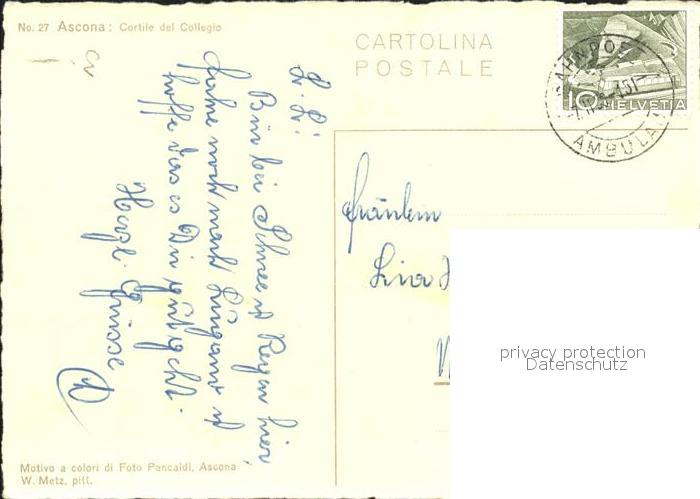 No. 27 Ascona: Cortile del Collegio
CARTOLINA
POSTALE
10 HELVETIA
BAHNPOST
AMBULA
L. L!
Bin bei Schnee u Regen hier,
fahre noch nach Lugano u
hoffe dass es Dir gut geht.
Herzl. Grüsse
Fräulein
privacy protection
Datenschutz
Motivo a colori di Foto Pancaldi, Ascona
W. Metz, pitt.